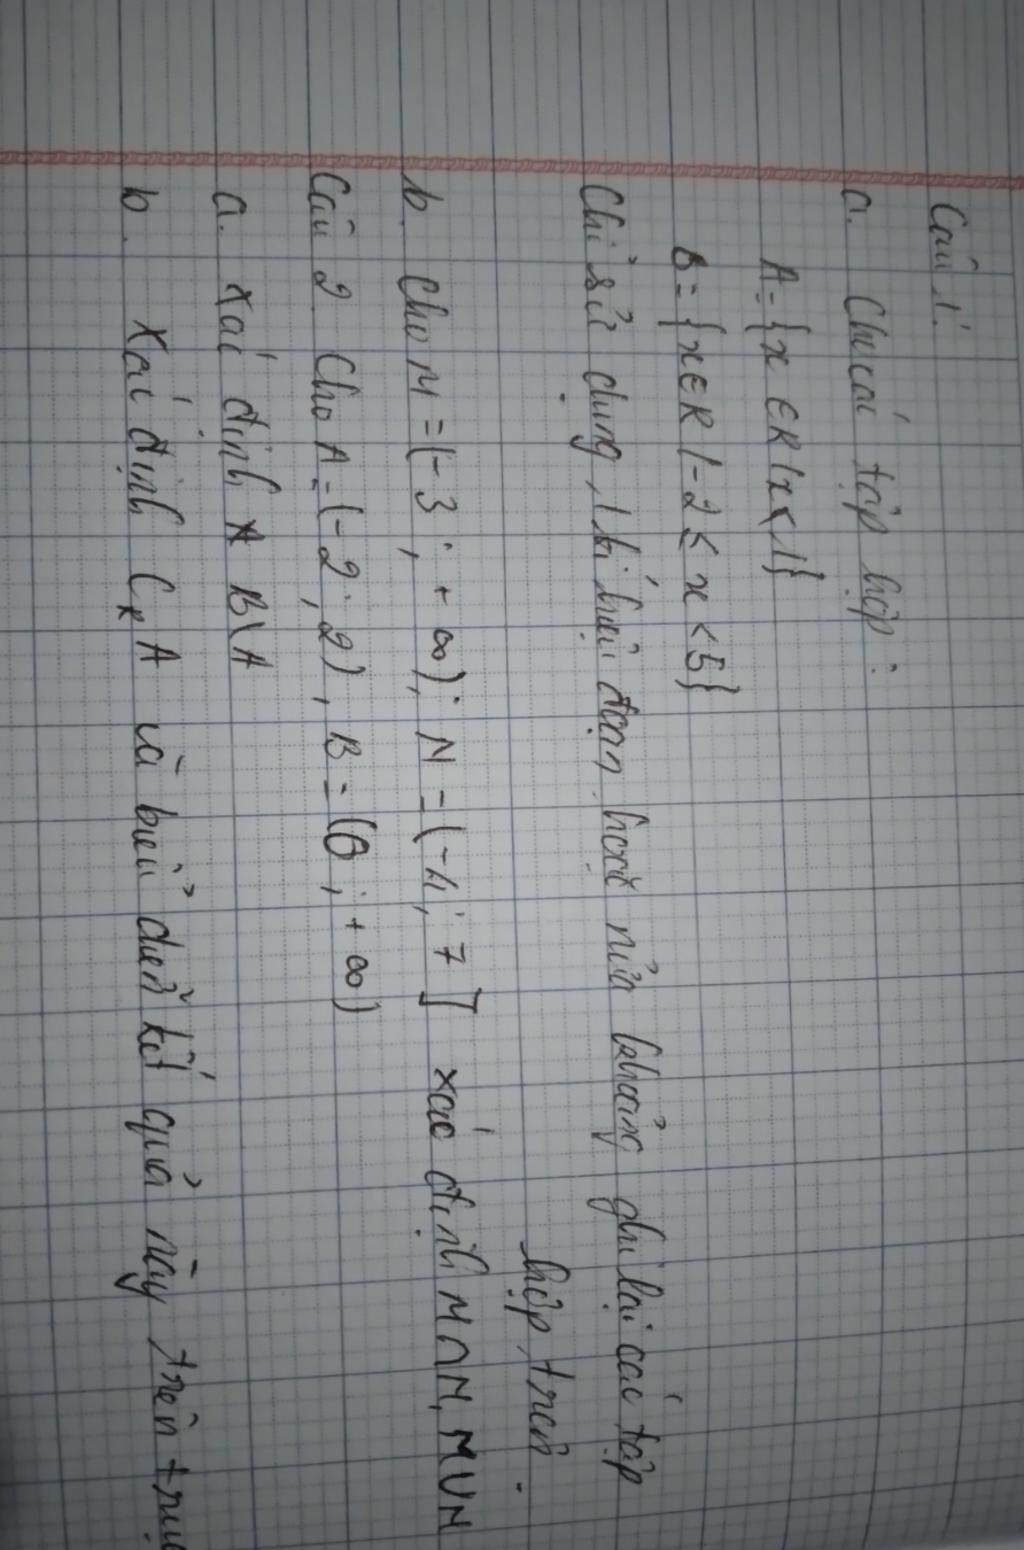 Câu 1:
a. Cho các tập hợp:
A = {x ∈ R | x < 1}
B = {x ∈ R | -2 ≤ x < 5}
Chỉ sử dụng kí hiệu đoạn, hoặc nửa khoảng ghi lại các tập
hợp trên.
b. Cho M = (-3; +∞); N = (-4; 7] xác định M∩N, M∪N
Câu 2 Cho A = (-2; 2), B = (0; +∞)
a. Xác định B\A
b. Xác định C_R A và biểu diễn kết quả này trên trục